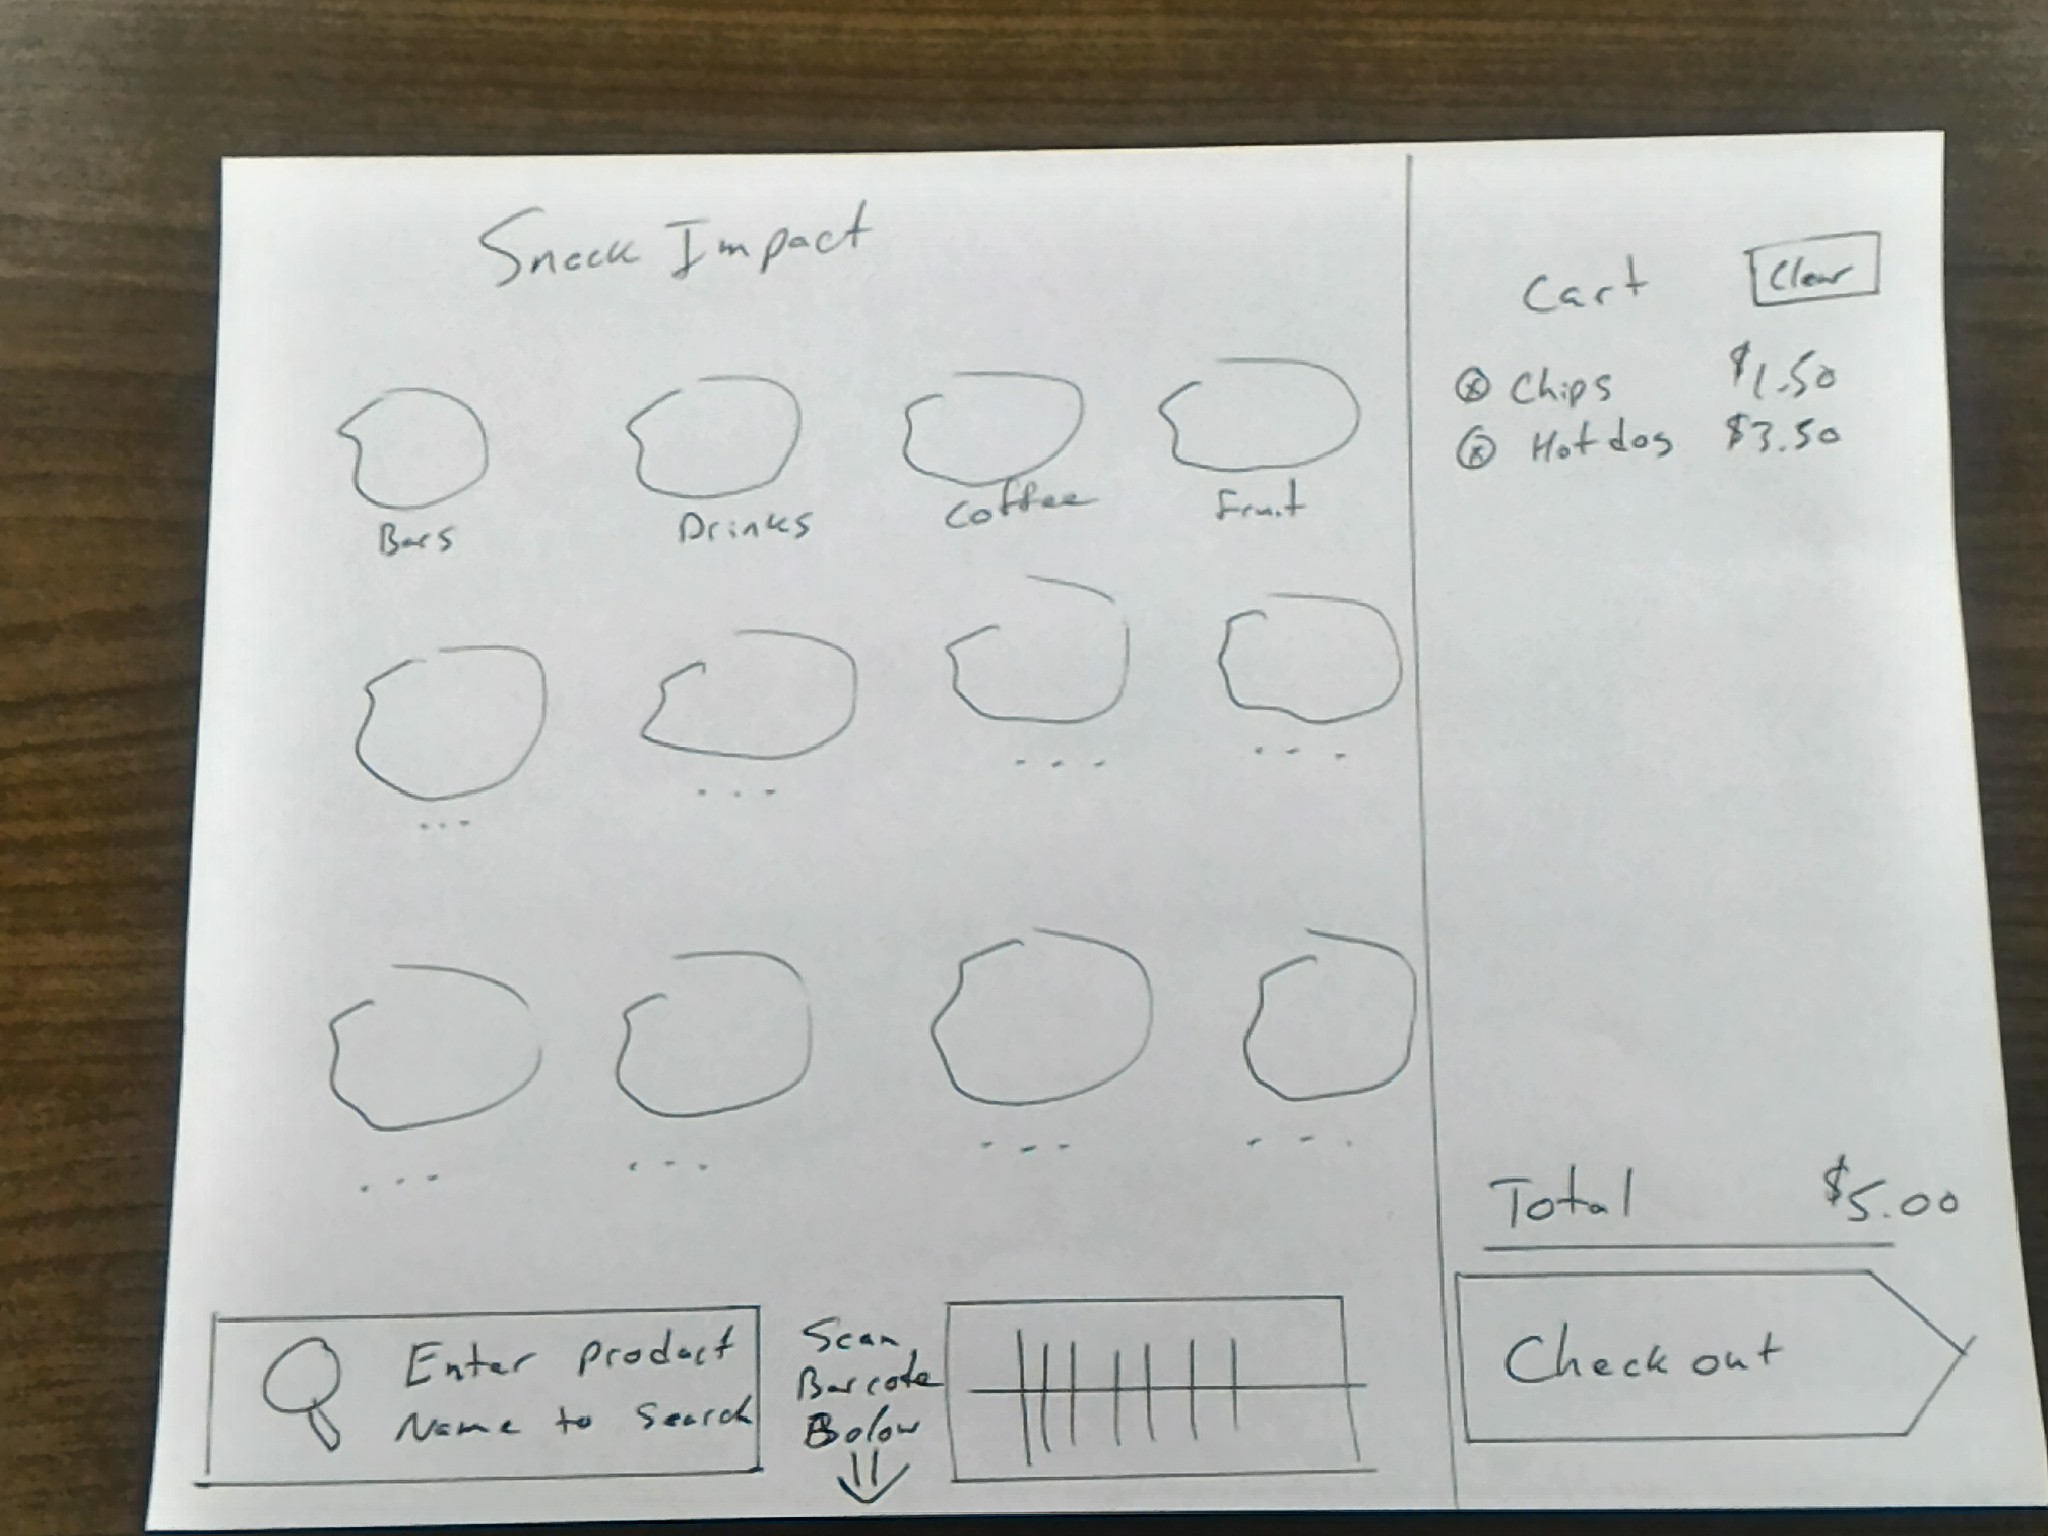 Snack Impact
Bars
Drinks
Coffee
Fruit
...
...
...
...
...
...
...
...
Enter product
Name to Search
Scan
Barcode
Below
Cart
Clear
Chips $1.50
Hotdog $3.50
Total $5.00
Check out